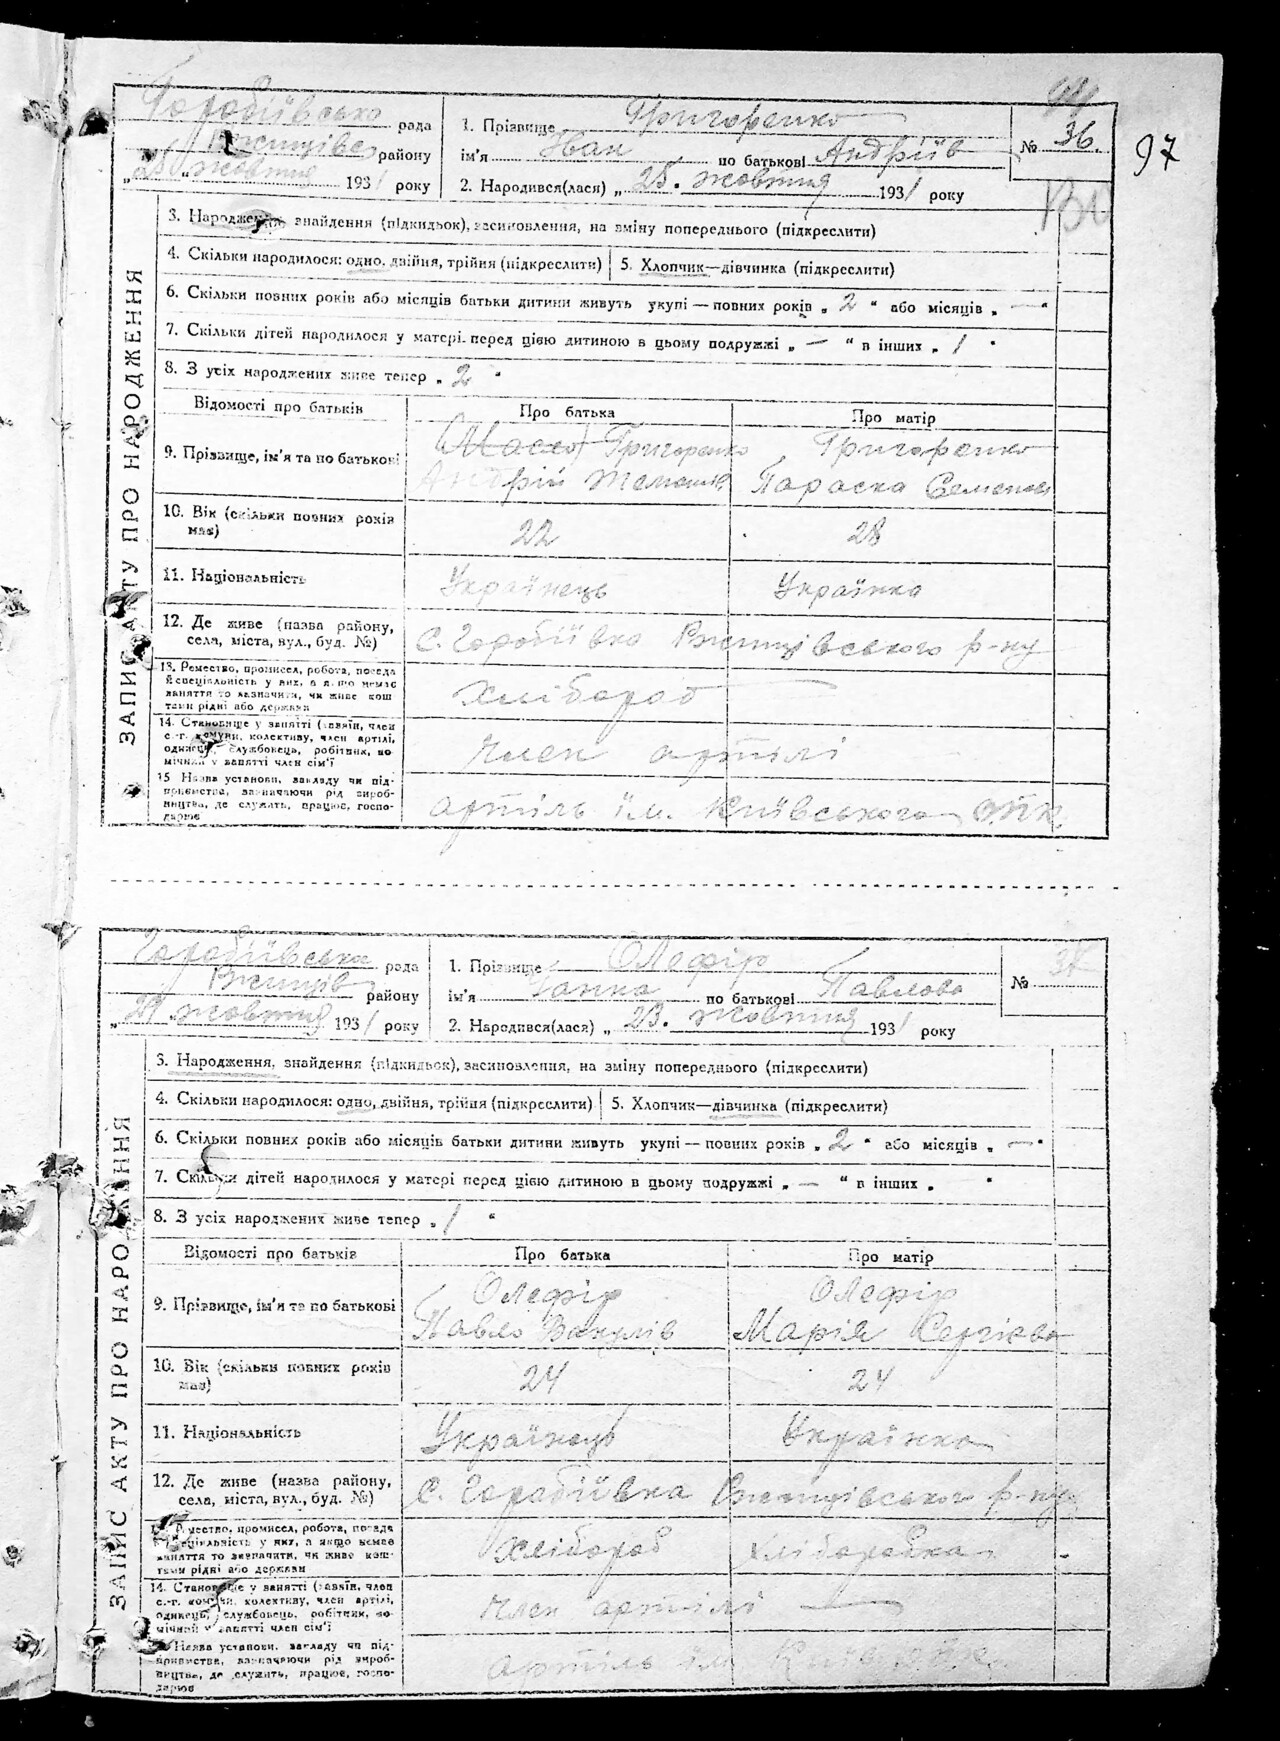 97
Горобіївсько рада
району
"25" жовтня 1931 року
1. Прізвище Григоренко
ім'я Іван по батькові Андріїв
2. Народився(лася) „ 25. жовтня 1931 року
№ 36.
ЗАПИС АКТУ ПРО НАРОДЖЕННЯ
3. Народження, знайдення (підкидьок), засиновлення, на зміну попереднього (підкреслити)
4. Скільки народилося: одно, двійня, трійня (підкреслити) 5. Хлопчик—дівчинка (підкреслити)
6. Скільки повних років або місяців батьки дитини живуть укупі — повних років „ 2 “ або місяців „ — “
7. Скільки дітей народилося у матері перед цією дитиною в цьому подружжі „ — “ в інших „ 1 “
8. З усіх народжених живе тепер „ 2 “
Відомості про батьків Про батька Про матір
9. Прізвище, ім'я та по батькові Григоренко Григоренко
Андрій Параска
10. Вік (скільки повних років має) 22 28
11. Національність Українець Українка
12. Де живе (назва району,
села, міста, вул., буд. №) С. Горобіївка Ржищівського р-ну
13. Ремество, промисел, робота, посада
й спеціальність у них, а якщо немає
заняття то зазначити, чи живе кош-
тами рідні або держави Хлібороб —
14. Становище у занятті (хазяїн, член
с.-г. комуни, колективу, член артілі,
одинець, службовець, робітник, по-
мічний у занятті член сім'ї член артілі
15 Назва установи, закладу чи під-
приємства, зазначаючи рід вироб-
ництва, де служить, працює, госпо-
дарює артіль ім. Київського
Горобіївська рада
Ржищів району
„ жовтня 1931 року
1. Прізвище Олефір
ім'я Ганна по батькові Павлова
2. Народився(лася) „ 23. жовтня 1931 року
№ 37
ЗАПИС АКТУ ПРО НАРОДЖЕННЯ
3. Народження, знайдення (підкидьок), засиновлення, на зміну попереднього (підкреслити)
4. Скільки народилося: одно, двійня, трійня (підкреслити) 5. Хлопчик—дівчинка (підкреслити)
6. Скільки повних років або місяців батьки дитини живуть укупі — повних років „ 2 “ або місяців „ — “
7. Скільки дітей народилося у матері перед цією дитиною в цьому подружжі „ — “ в інших „ — “
8. З усіх народжених живе тепер „ 1 “
Відомості про батьків Про батька Про матір
9. Прізвище, ім'я та по батькові Олефір Олефір
Павло Вакулів Марія Сергієва
10. Вік (скільки повних років має) 24 24
11. Національність Українець Українка
12. Де живе (назва району,
села, міста, вул., буд. №) С. Горобіївка Ржищівського р-ну
13. Ремество, промисел, робота, посада
й спеціальність у них, а якщо немає
заняття то зазначити, чи живе кош-
тами рідні або держави Хлібороб Хліборобка
14. Становище у занятті (хазяїн, член
с.-г. комуни, колективу, член артілі,
одинець, службовець, робітник, по-
мічний у занятті член сім'ї член артілі —
15 Назва установи, закладу чи під-
приємства, зазначаючи рід вироб-
ництва, де служить, працює, госпо-
дарює артіль ім.